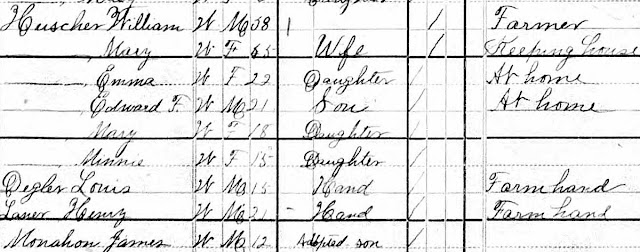 Huscher William W M 58 / / Farmer
——, Mary W F 55 Wife / Keeping house
——, Emma W F 22 Daughter / At home
——, Edward F. W M 21 Son / At home
——, Mary W F 18 Daughter /
——, Minnie W F 15 Daughter /
Degler Louis W M 15 Hand / Farm hand
Laner Henry W M 21 Hand / Farm hand
Monahon James W M 12 Adopted son /